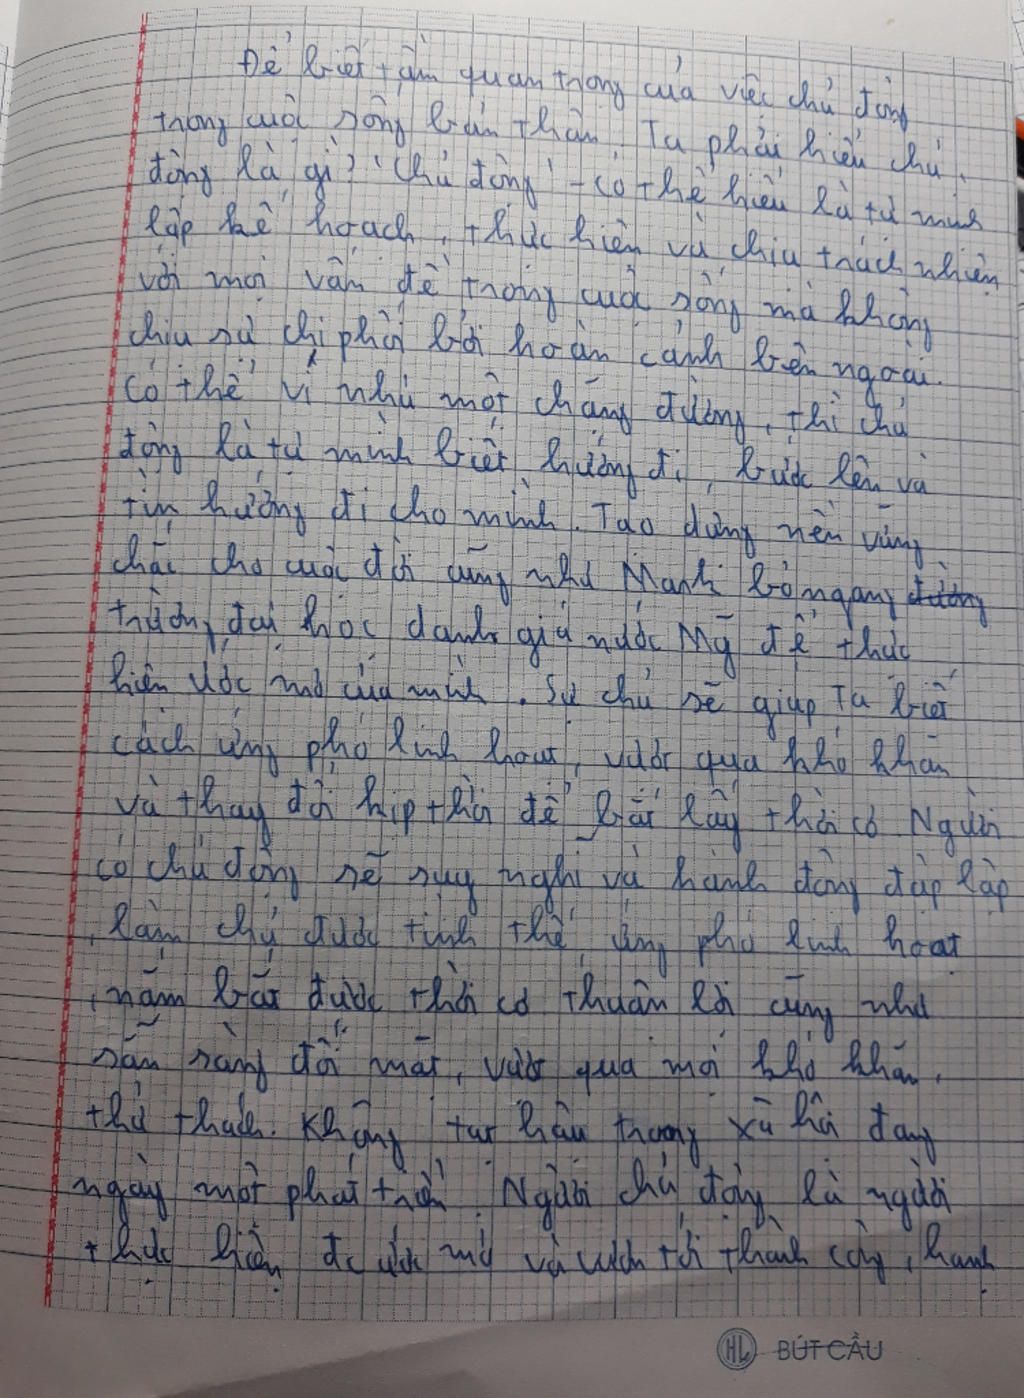 Để biết tầm quan trọng của việc chủ động
trong cuộc sống bản thân. Ta phải hiểu chủ
động là gì? "Chủ động" - có thể hiểu là tự mình
lập kế hoạch, thực hiện và chịu trách nhiệm
với mọi vấn đề trong cuộc sống mà không
chịu sự chi phối bởi hoàn cảnh bên ngoài.
Có thể ví như một chặng đường, thì chủ
động là tự mình biết hướng đi, bước lên và
tìm hướng đi cho mình. Tạo dựng nền vững
chắc cho cuộc đời cũng như Manh bỏ ngang đường
trường đại học danh giá nước Mỹ để thực
hiện ước mơ của mình. Sự chủ sẽ giúp Ta biết
cách ứng phó linh hoạt, vượt qua khó khăn
và thay đổi kịp thời để bắt lấy thời cơ Người
có chủ động sẽ suy nghĩ và hành động độp lập
, làm chủ được tình thế, ứng phó linh hoạt
, nắm bắt được thời cơ thuận lợi cũng như
sẵn sàng đối mặt, vượt qua mọi khó khăn,
thử thách. Không tụt hậu trong xã hội đang
ngày một phát triển. Người chủ động là người
thực hiện đc ước mơ và vươn tới thành công, hạnh
HL BÚT CẦU